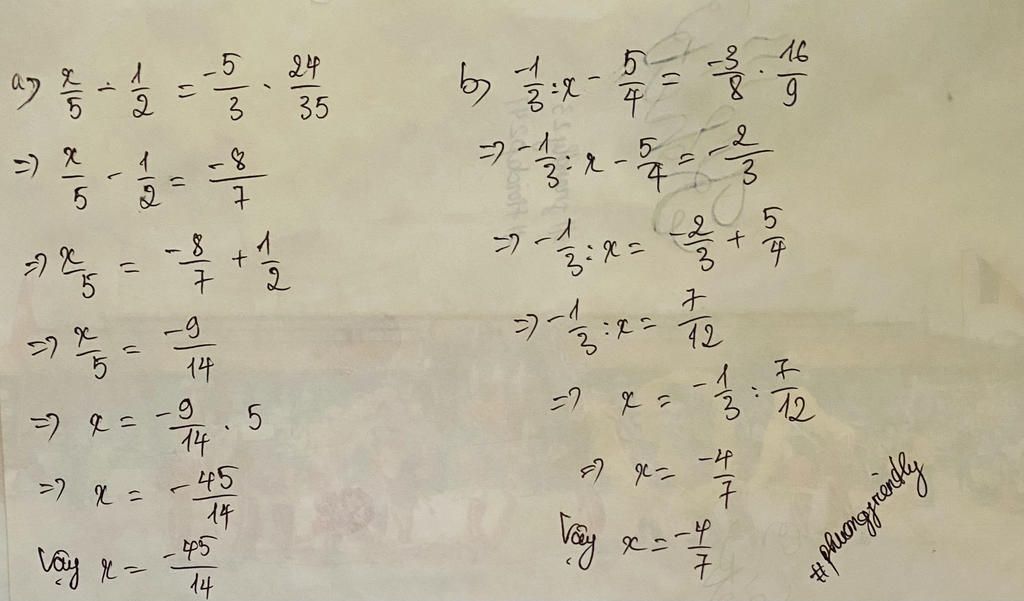 a) x/5 - 1/2 = -5/3 . 24/35
=> x/5 - 1/2 = -8/7
=> x/5 = -8/7 + 1/2
=> x/5 = -9/14
=> x = -9/14 . 5
=> x = -45/14
Vậy x = -45/14
b) -1/3 : x - 5/4 = -3/8 . 16/9
=> -1/3 : x - 5/4 = -2/3
=> -1/3 : x = -2/3 + 5/4
=> -1/3 : x = 7/12
=> x = -1/3 : 7/12
=> x = -4/7
Vậy x = -4/7
#phuongfriendly